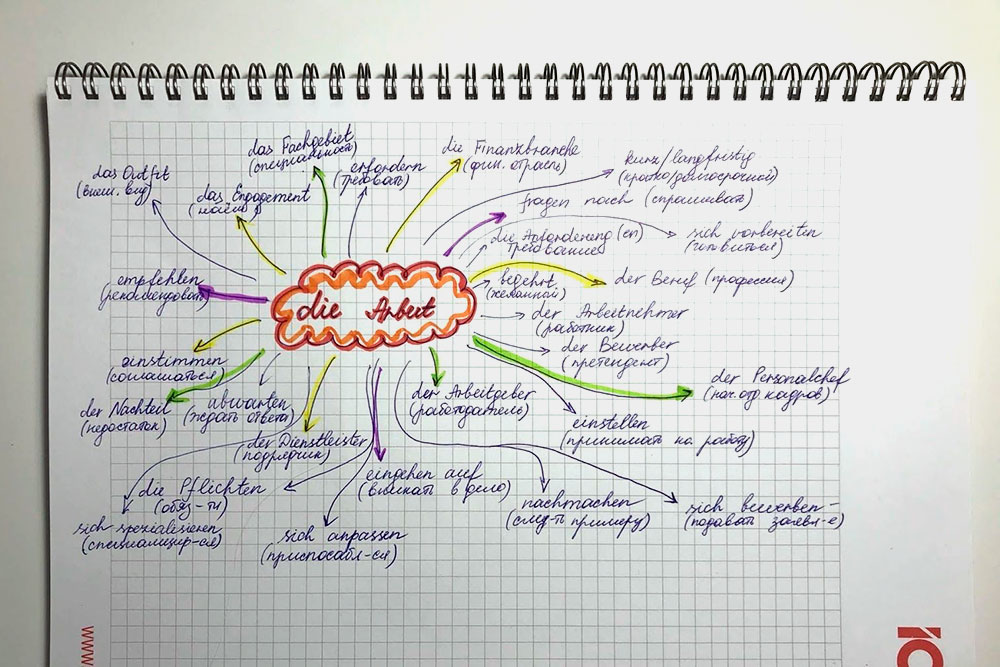 das Fachgebiet
(специальность)
die Finanzbranche
(фин. отрасль)
erfordern
(требовать)
kurz/langfristig
(кратко/долгосрочной)
das Outfit
(внеш. вид)
das Engagement
fragen nach (спрашивать)
die Anforderung (en)
требование
sich vorbereiten
(готовиться)
empfehlen
(рекомендовать)
die Arbeit
begehrt
(желанной)
der Beruf (профессия)
der Arbeitnehmer
(работник)
der Bewerber
(претендент)
einstimmen
(соглашаться)
der Personalchef
(нач. отд кадров)
der Nachteil
(недостаток)
abwarten
(ждать ответа)
der Arbeitgeber
(работодатель)
einstellen
(принимать на работу)
der Dienstleister
(подрядчик)
eingehen auf
(вникать в дело)
die Pflichten
(обяз-ти)
nachmachen
(след-ть примеру)
sich bewerben
(подавать заявл-е)
sich spezialisieren
(специализир-ся)
sich anpassen
(приспособл-ся)
www